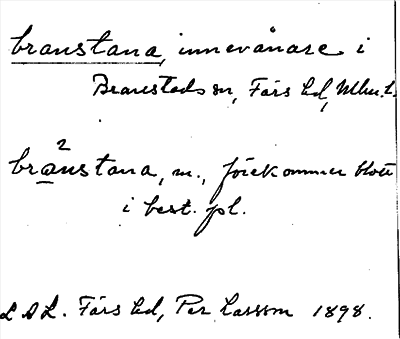 branstana, innevånare i
Branstads sn, Färs hd, Mlm. l.
brånstana, m., förekommer blott
i best. pl.
L A L. Färs hd, Per Larsson 1898.